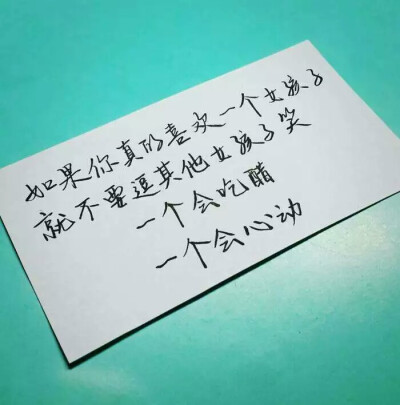 如果你真的喜欢一个女孩子
就不要逗其他女孩子笑
一个会吃醋
一个会心动